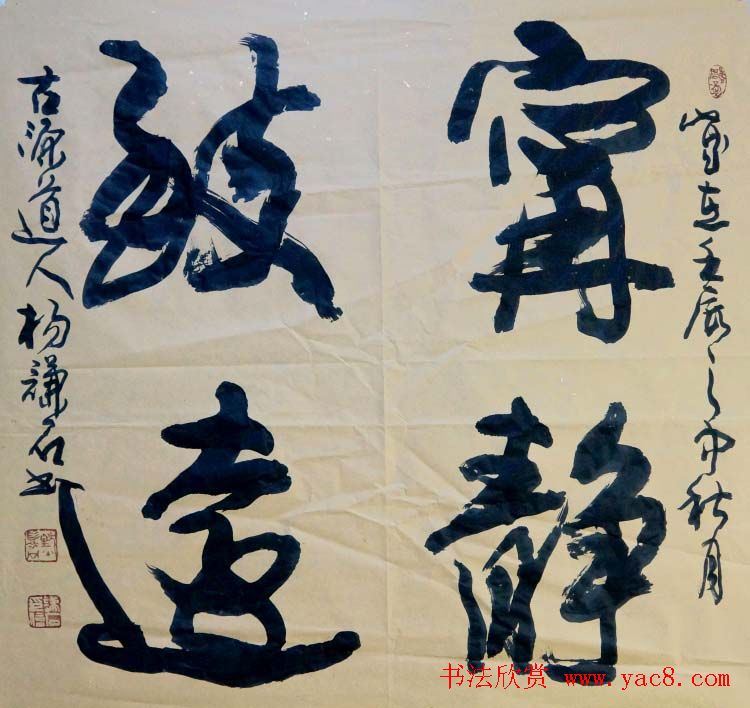 歲在壬辰之中秋月
寧靜
致遠
道人楊謙石书
书法欣赏 www.yac8.com